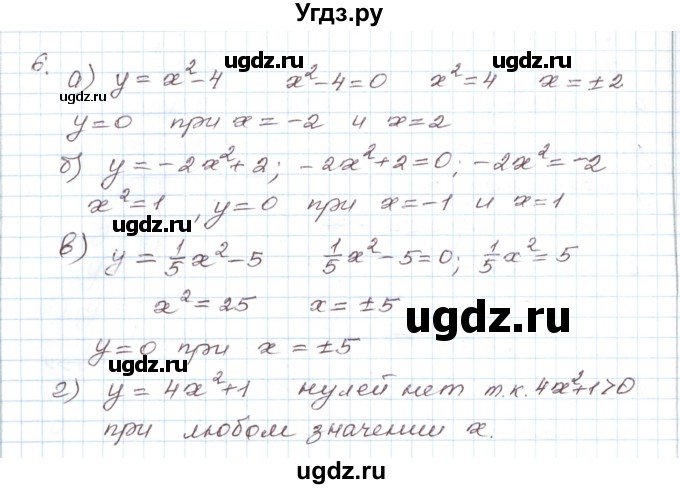 Угдз.ру
6.
а) y = x²-4 x²-4=0 x²=4 x=±2
ugdz.ru
ugdz.ru
y=0 при x=-2 и x=2
б) y=-2x²+2; -2x²+2=0; -2x²=-2
x²=1, y=0 при x=-1 и x=1
ugdz.ru
в) y=1/5x²-5 1/5x²-5=0; 1/5x²=5
x²=25 x=±5
ugdz.ru
y=0 при x=±5
ugdz.ru
г) y=4x²+1 нулей нет т.к. 4x²+1>0
при любом значении x.
ugdz.ru
ugdz.ru